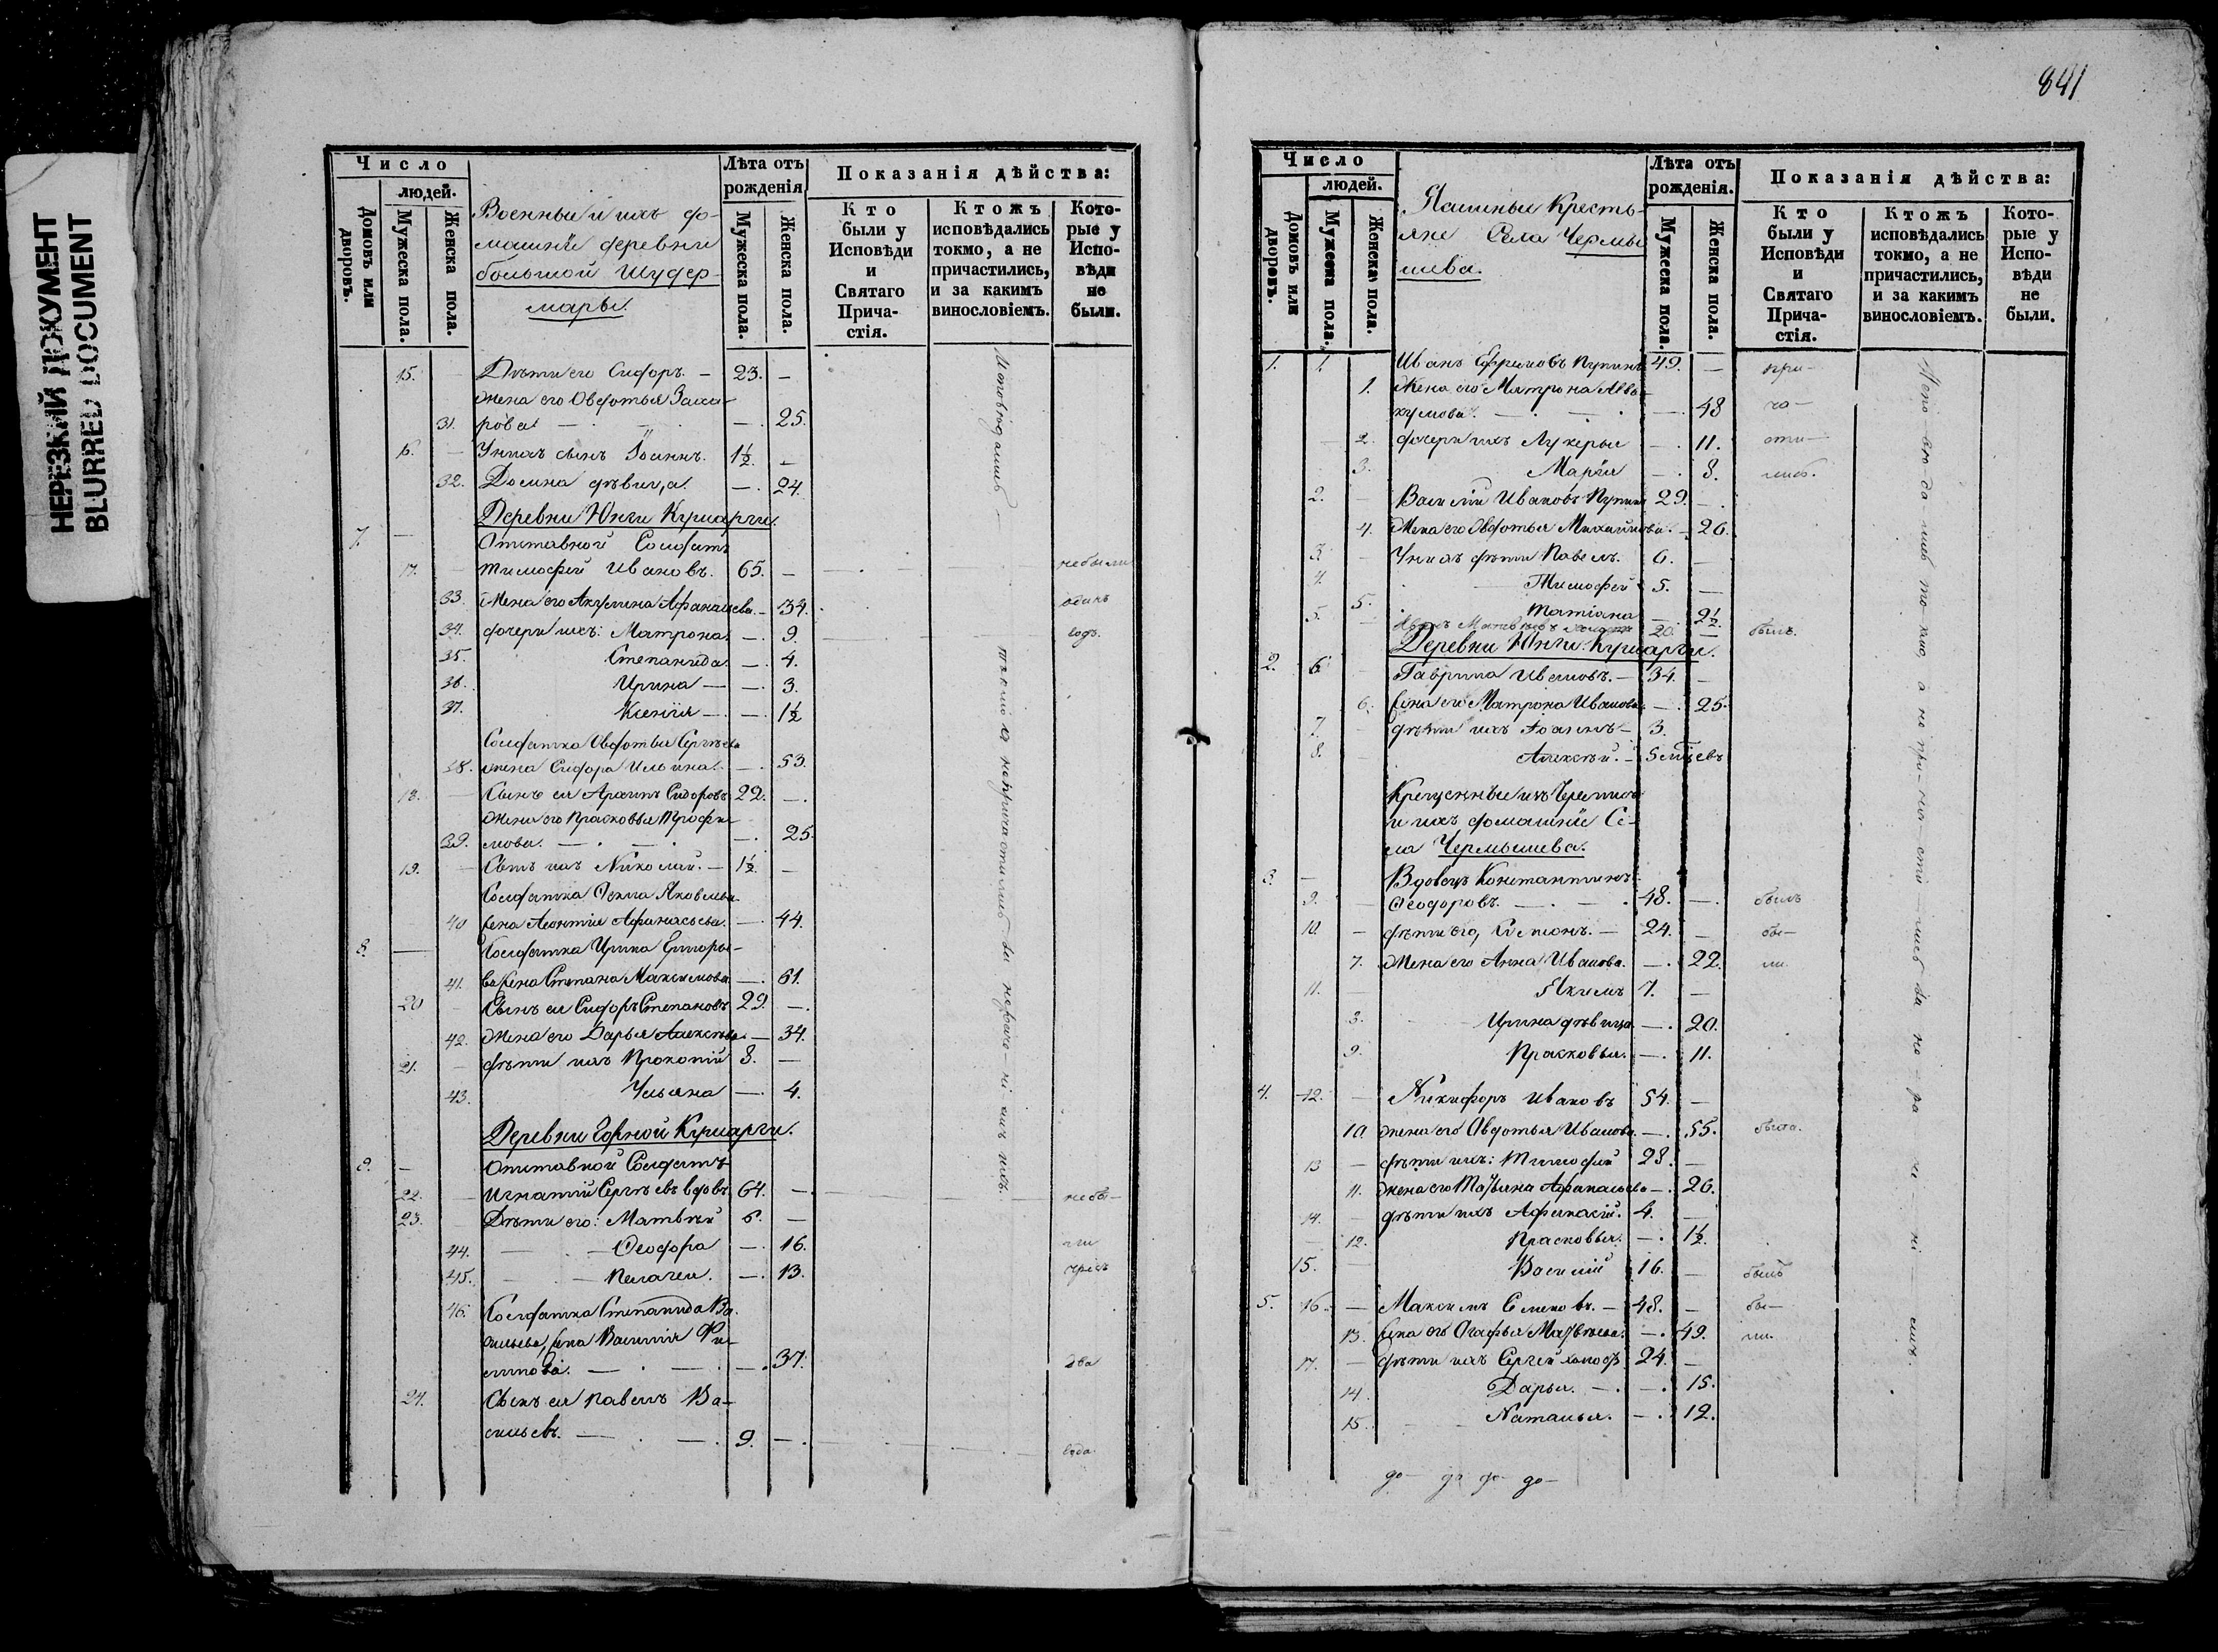 НЕРЕЗКИЙ ДОКУМЕНТ
BLURRED DOCUMENT
Число
людей.
Домовъ или дворовъ.
Мужеска пола.
Женска пола.
Военные и ихъ до-
машніе деревни
большой Шудер-
мары.
Лѣта отъ рожденія
Мужеска пола.
Женска пола.
Показанія дѣйства:
Кто были у Исповѣди и Святаго Прича-стія.
Ктожъ исповѣдались токмо, а не причастились, и за какимъ винословіемъ.
Кото-рые у Испо-вѣди не были.
15. Дѣти его Сидоръ. — 23. —
жена его Овдотья
31. рова — 25.
16. У нихъ сынъ Іоаннъ. 1½. —
32. Домна дѣвица. — 24.
Деревни Юнги Кушарги.
7. Отставной Солдатъ
17. Тимофей Ивановъ. 65. — небыли
33. Жена его Акулина Афанасьева. — 34. одинъ
34. дочери ихъ: Матрона. — 9. годъ.
35. Степанида. — 4.
36. Ирина — 3.
37. Ксенія — 1½
Солдатка Овдотья Сергѣева
38. жена Сидора Ильина. — 53.
18. Сынъ ея Архипъ Сидоровъ 22. —
жена его Прасковья Трофи-
39. мова. — 25.
19. Сынъ ихъ Николай. — 1½. —
Солдатка Ѳекла Яковлева
40 жена Леонтія Афанасьева. — 44.
8. Солдатка Ирина Григорье-
41. ва жена Степана Максимова — 61.
20 Сынъ ея Сидоръ Степановъ 29. —
42. жена его Дарья Алексѣева — 34.
21. дѣти ихъ Прокопій 8. —
43. Ульяна — 4.
Деревни Горной Кушарги.
9. Отставной Солдатъ
22. Игнатій Сергѣевъ вдовъ 64. — небы-
23. Дѣти его: Матвѣй 6. —
44. Ѳеодора — 16. ли
45. Пелагея. — 13. чрезъ
46. Солдатка Степанида Ва-
сильева, жена Василія Фи-
липова. — 37. два
24. Сынъ ея Павелъ Ва-
сильевъ. — 9. — года.
Исповѣдались — токмо а непричастились за нерадѣ-ні-емъ ихъ.
841
Число
людей.
Домовъ или дворовъ.
Мужеска пола.
Женска пола.
Пашенные Кресть-
яне Села Чермы-
шева.
Лѣта отъ рожденія.
Мужеска пола.
Женска пола.
Показанія дѣйства:
Кто были у Исповѣди и Святаго Прича-стія.
Ктожъ исповѣдались токмо, а не причастились, и за какимъ винословіемъ.
Кото-рые у Испо-вѣди не были.
1. 1. Иванъ Ефремовъ Пупинъ 49. — при-
1. Жена его Матрона Авва-
кумова. — 48 ча-
2. дочери ихъ Лукерья — 11. сти-
3. Марія — 8. лись.
2. Василій Ивановъ Пупинъ 29. —
4. Жена его Овдотья Михайлова. — 26.
3. У нихъ дѣти Павелъ. 6. —
4. Тимофей 5. —
5. Татіана — 2½.
5. 20. — былъ.
Деревни Юнги Кушарги.
2. 6. Гаврила Ивановъ. — 34. —
6. жена его Матрона Иванова. — 25.
7. дѣти ихъ Іоаннъ — 3.
8. Алексѣй. — 5 мѣсяцевъ
Крещенные изъ Черемисъ
и ихъ домашніе Се-
ла Чермышева.
3. Вдовецъ Константинъ
9. Ѳеодоровъ. — 48. — былъ
10. дѣти его, Симеонъ. — 24. — бы-
7. Жена его Анна Иванова. — 22. ли.
11. Якимъ 7. —
8. Ирина дѣвица — 20.
9. Прасковья. — 11.
4. 12. Никифоръ Ивановъ 54. —
10. жена его Овдотья Иванова. — 55. была.
13 дѣти ихъ: Тимофей 28. —
11. жена его Татьяна Афанасьева — 26.
14. дѣти ихъ Афанасій. 4. —
12. Прасковья. — 1½.
15. Василій 16. — былъ
5. 16. Максимъ Семеновъ. — 48. — бы-
13. жена его Огафья Матвѣева. — 49. ли.
17. дѣти ихъ Сергей 24. —
14. Дарья. — 15.
15. Наталья. — 12.
до- до до- до-